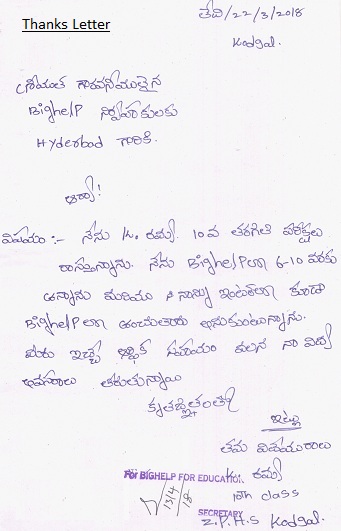 Thanks Letter
తేది/22/3/2018
Kodgal.
గౌరవనీయులైన
Bighelp నిర్వాహకులకు
Hyderbad గారికి.
ఆర్యా!
విషయం :- నేను K. రమ్య. 10వ తరగతి పరీక్షలు
రాస్తున్నాను. నేను Bighelpలో 6-10 వరకు
ఉన్నాను మరియు నన్ను ఇంటర్‌లో కూడా
Bighelpలో ఉంచుతారు అనుకుంటున్నాను.
మీరు ఇచ్చే ఆర్థిక సహాయం వలన నా విద్య
అవసరాలు తీరుతున్నాయి
కృతజ్ఞతలతో
ఇట్లు
తమ విధేయురాలు
For BIGHELP FOR EDUCATION. K. రమ్య
13/4/18
10th class
SECRETARY
Z.P.H.S Kodgal.